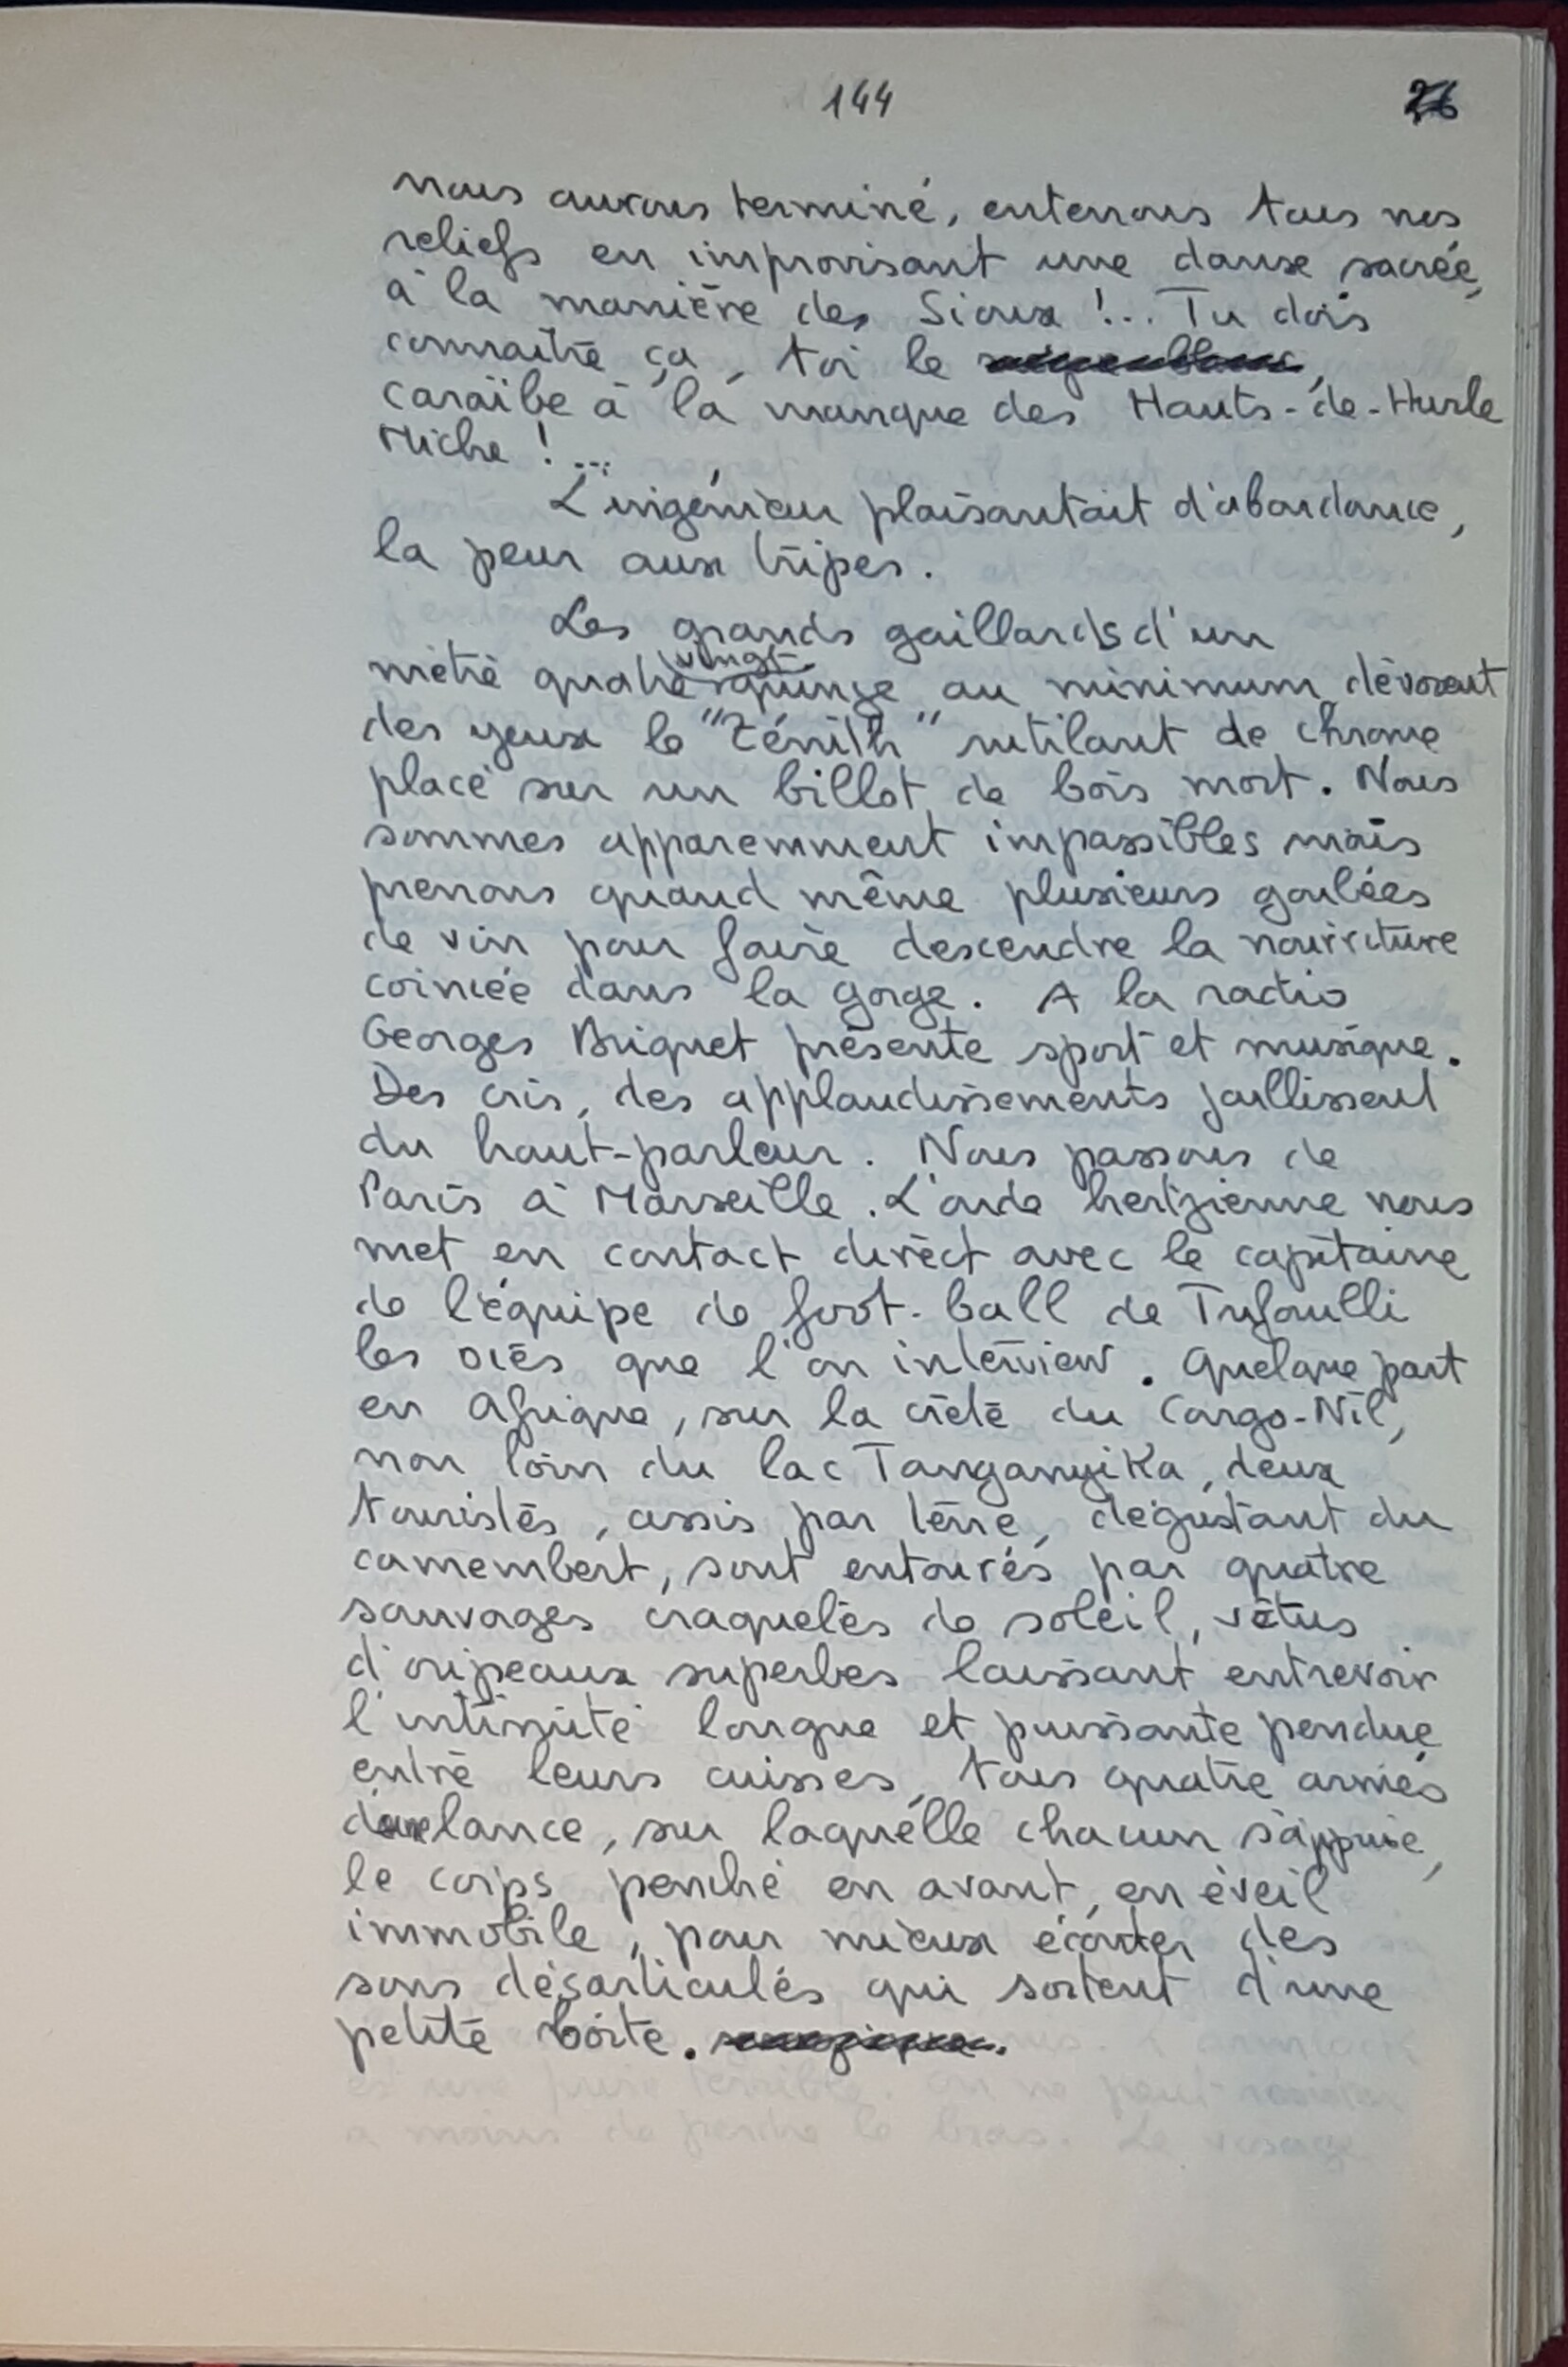 144
nous aurons terminé, enterrons tous nos
reliefs en improvisant une danse sacrée,
à la manière des Sioux !... Tu dois
connaître ça, toi le
caraïbe à la manque des Hauts-de-Hurle
Miche !...
L'ingénieur plaisantait d'abondance,
la peur aux tripes.
Les grands gaillards d'un
vingt
mètre quatre quinze au minimum dévorent
des yeux le "Zénith" rutilant de chrome
placé sur un billot de bois mort. Nous
sommes apparemment impassibles mais
prenons quand même plusieurs goulées
de vin pour faire descendre la nourriture
coincée dans la gorge. A la radio
Georges Briquet présente sport et musique.
Des cris, des applaudissements jaillissent
du haut-parleur. Nous passons de
Paris à Marseille. L'onde hertzienne nous
met en contact direct avec le capitaine
de l'équipe de foot-ball de Trifouilli
les oies que l'on interview. Quelque part
en Afrique, sur la crête du Congo-Nil,
non loin du lac Tanganyika, deux
touristes, assis par terre, dégustant du
camembert, sont entourés par quatre
sauvages craquelés de soleil, vêtus
d'oripeaux superbes laissant entrevoir
l'intimité longue et puissante pendue
entre leurs cuisses, tous quatre armés
d'une lance, sur laquelle chacun s'appuie,
le corps penché en avant, en éveil
immobile, pour mieux écouter des
sons désarticulés qui sortent d'une
petite boîte.